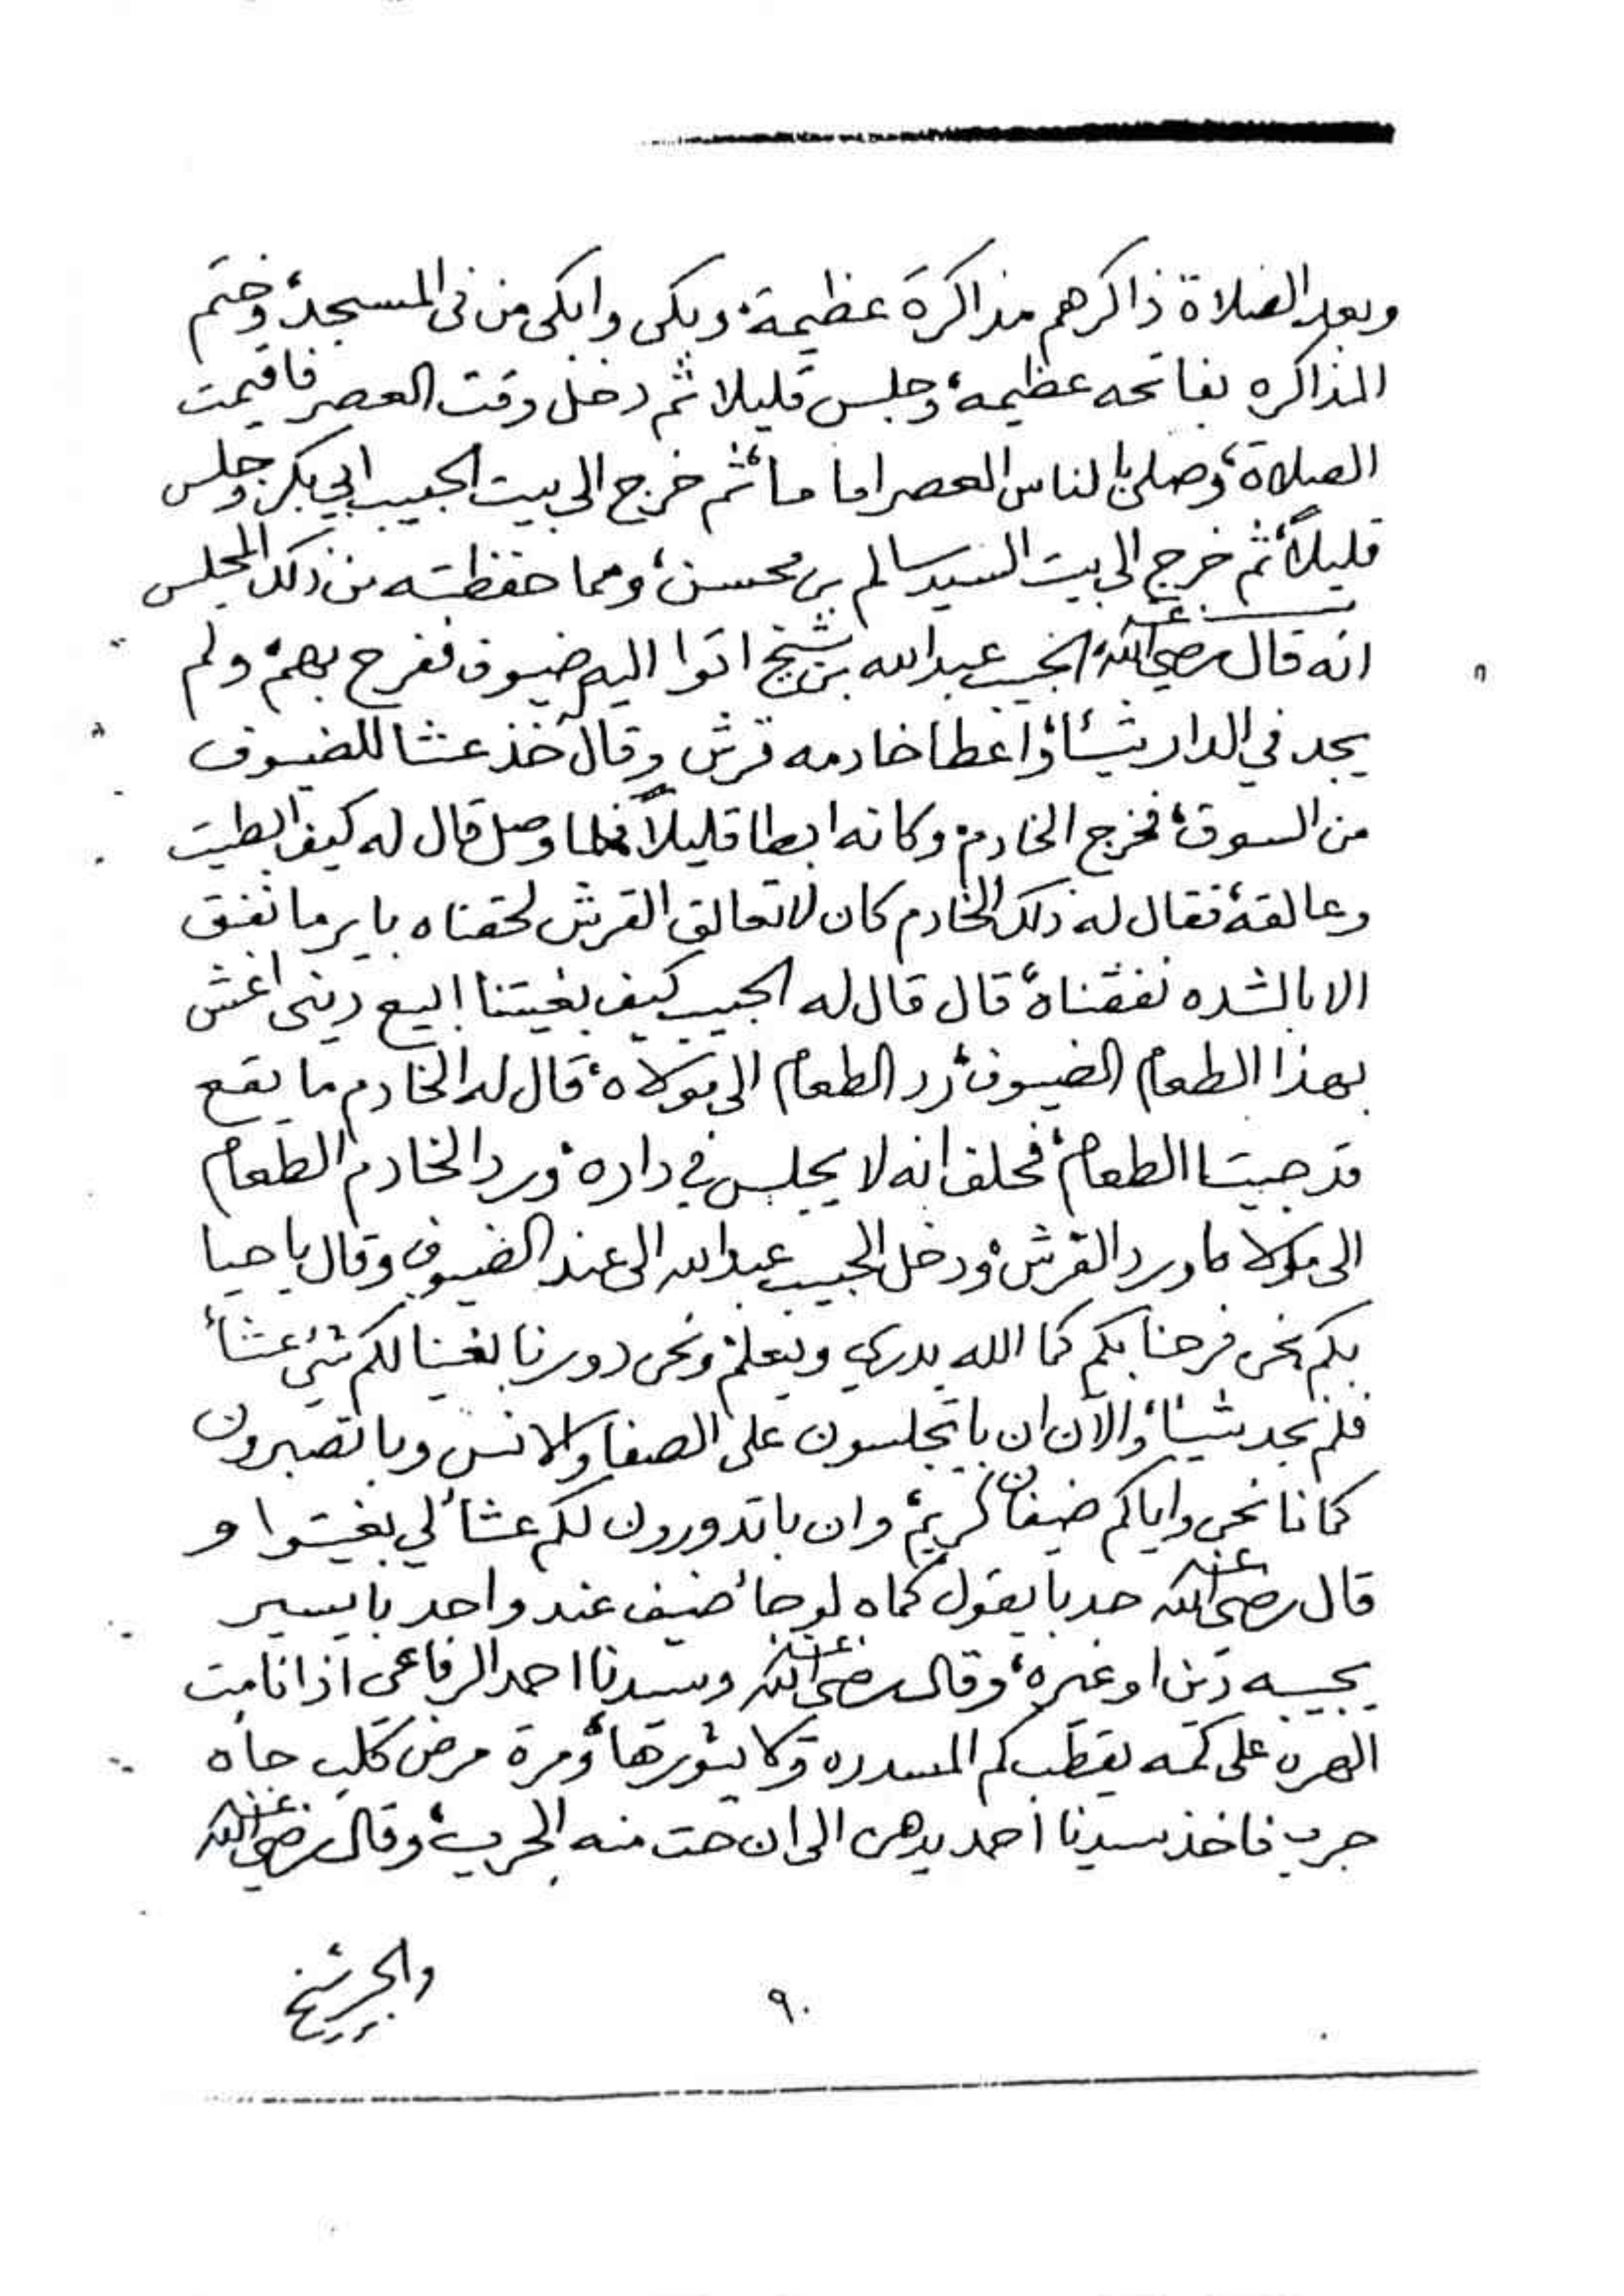 وبعد الصلاة ذاكرهم مذاكرة عظيمة، وبكى وابكى من في المسجد، وختم
المذاكره بفاتحه عظيمه، وجلس قليلا ثم دخل وقت العصر فاقيمت
الصلاة، وصلى بالناس العصر اماما، ثم خرج الى بيت الحبيب ابي بكر وجلس
قليلاً، ثم خرج الى بيت السيد سالم بن محسن، ومما حفظته من ذلك المجلس
انه قال رضي الله عنه الحبيب عبدالله بن شيخ اتوا اليه ضيوف ففرح بهم، ولم
يجد في الدار شيئا، واعطا خادمه قرش وقال خذ عشا للضيوف
من السوق، فخرج الخادم، وكانه ابطا قليلاً فلما وصل قال له كيف ابطيت
وعالقة، فقال له ذلك الخادم كان لا تعالق القرش لحقناه باير ما نفق
الا بالشده نفقناه، قال قال له الحبيب كيف بغيتنا ابيع ديني اغش
بهذا الطعام الضيوف، رد الطعام الى مولاه، قال له الخادم ما يقع
قد جبت الطعام، فحلف انه لا يجلس في داره، ورد الخادم الطعام
الى مولاه ورد القرش، ودخل الحبيب عبدالله الى عند الضيوف وقال ياحيا
بكم نحن فرحنا بكم كما الله يدري ويعلم، ونحن دورنا بغينا لكم شيء عشأ
فلم نجد شيئا، والآن ان باتجلسون على الصفا والانس وباتصبرون
كمانا نحن واياكم ضيفان كريم، وان باتدورون لكم عشأ لي بغيتوا و
قال رضي الله عنه حد بايقول كماه لوجأ ضيف عند واحد بايسير
يجيبه دين اوغيره، وقال رضي الله عنه وسيدنا احمد الرفاعي اذا نامت
الهره على كمه يقطب كم المسدره ولا يثورها، ومرة مرض كلب جاه
جرب فاخذ سيدنا احمد يدهن الى ان حت منه الجرب، وقال رضي الله عنه
٩٠